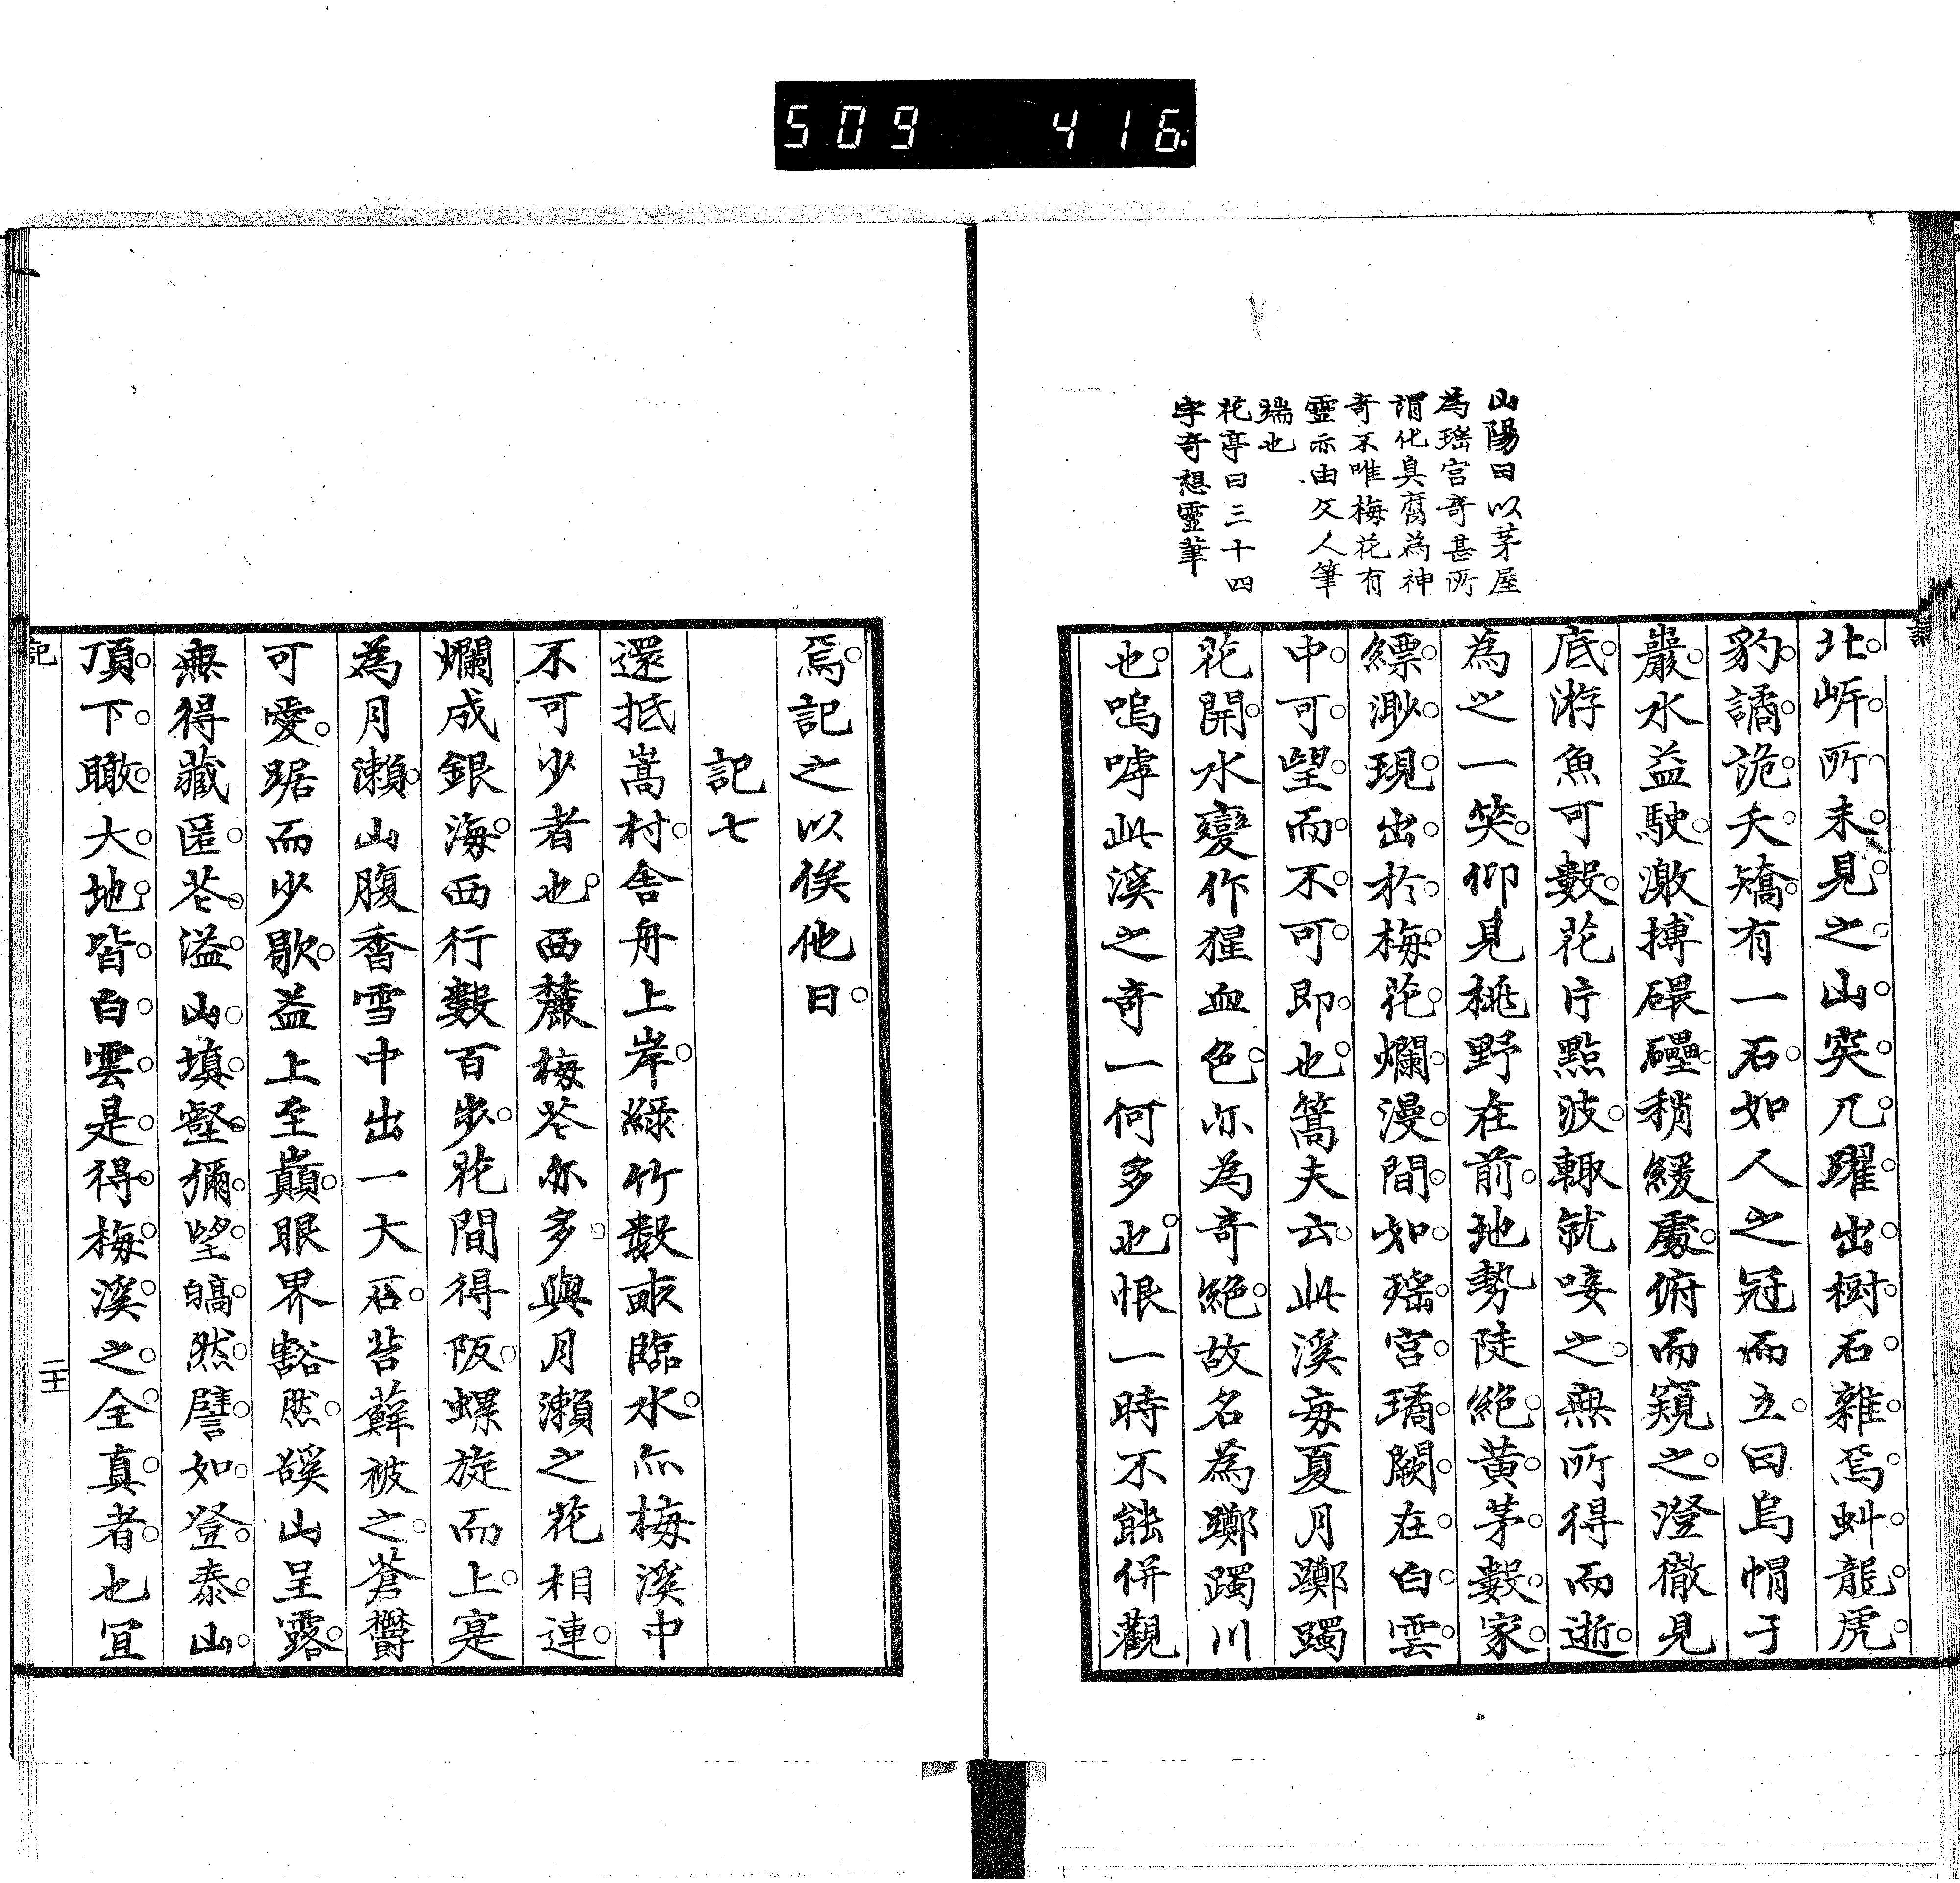 509 416
山陽曰以茅屋
為瑤宮奇甚所
謂化臭腐為神
奇不唯梅花有
靈亦由文人筆
端也
花亭曰三十四
字奇想靈筆
北岸所未見之山突兀躍出樹石雜焉虯龍虎
豹譎詭夭矯有一石如人之冠而立曰烏帽子
巖水益駛激搏磈礧稍緩處俯而窺之澄徹見
底游魚可數花片點波輙就唼之無所得而逝
為之一笑仰見桃野在前地勢陡絶黄茅數家
縹渺現出於梅花爛漫間如瑤宮璚闕在白雲
中可望而不可即也篙夫云此溪每夏月躑躅
花開水變作猩血色亦為奇絶故名為躑躅川
也嗚呼此溪之奇一何多也恨一時不能併觀
焉記之以俟他日
記七
還抵嵩村舍舟上岸緑竹數畝臨水亦梅溪中
不可少者也西麓梅花亦多與月瀬之花相連
爛成銀海西行數百步花間得阪螺旋而上寔
為月瀬山腹香雪中出一大石苔蘚被之蒼欝
可愛踞而少歇益上至巓眼界豁然谿山呈露
無得藏匿花溢山填壑彌望皜然譬如登泰山
頂下瞰大地皆白雲是得梅溪之全真者也宜
記
二十